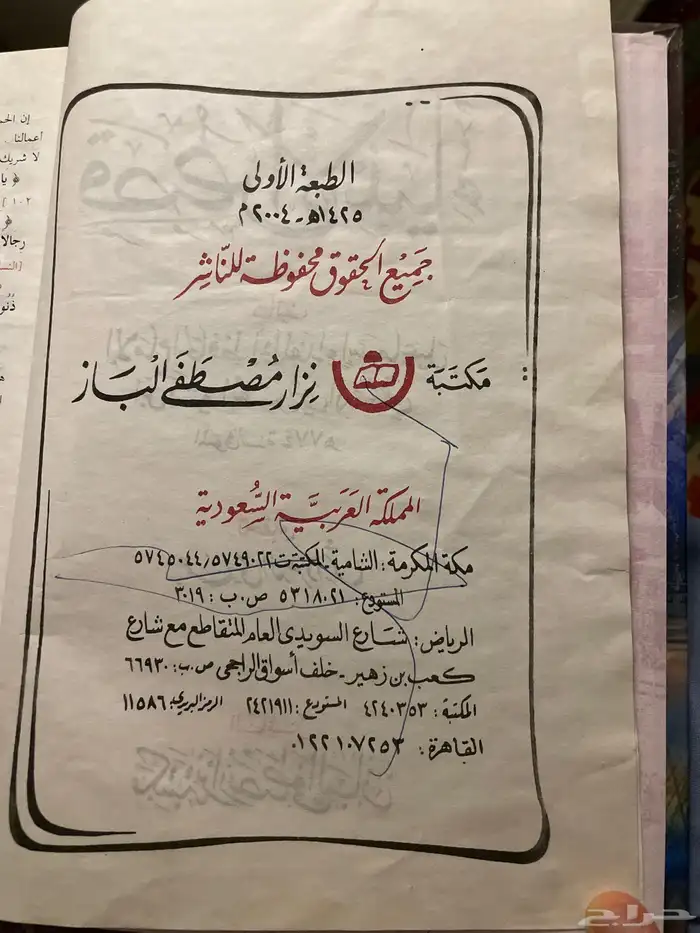 الطبعة الأولى
١٤٢٥هـ - ٢٠٠٤م
جَمِيع الحقوق محفوظة للنّاشِر
مَكتَبَة نِزار مُصْطَفَى الْبَاز
المملكة العَرَبيَّة السُّعودية
مكة المكرمة: الشامية - المكتبة ت ٥٧٤٩٠٢٢/٥٧٤٥٠٤٤
المستودع: ٥٣١٨٠٢١ ص.ب: ٣٠١٩
الرياض: شارع السويدى العام المتقاطع مع شارع
كعب بن زهير - خلف أسواق الراجحى ص.ب: ٦٦٩٣٠
المكتبة: ٤٢٤٠٣٥٣ المستودع: ٢٤٢١٩١١ الرمز البريدى: ١١٥٨٦
القاهرة: ٠١٢٢١٠٧٢٥٣
إن الحم
أعمالنا
لا شريك
﴿ يا
١٠٢ ]
رجالا
حراج